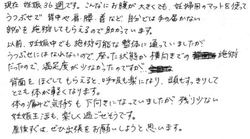 現在 妊娠36週です。こんなにお腹が大きくても、妊婦用のマットを使って
うつぶせで 背中や肩・腰・首など 自分では手の届かない
部分も 施術してもらえるので助かっています。
以前、妊娠中でも施術可能な整体に通っていましたが
うつぶせにはなれないので、座った状態か横向きでの施術
だったので、満足度がかなりちがったのですが
背面もほぐしてもらえると、呼吸も楽になり、頭もすっきりして
とても体が軽くなります。
体の痛みで気持ちも下向きになっていましたが 残り少ない
妊娠生活も、楽しく過ごせそうです。
産後すぐに ぜひ 出張をお願いしようと思います。